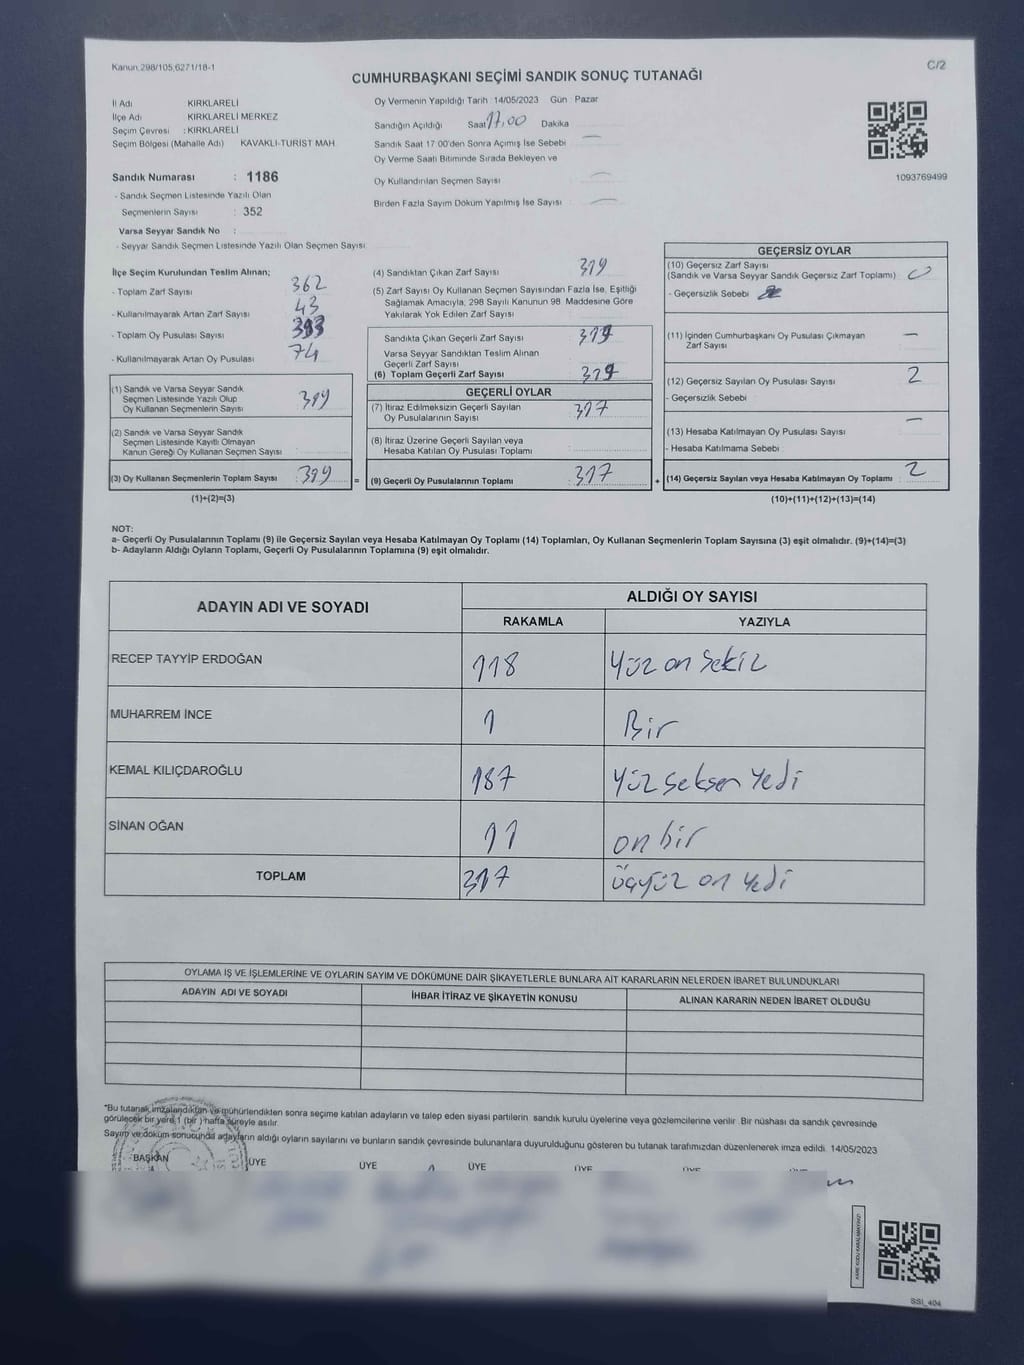 Kanun 298/105,6271/18-1
C/2
CUMHURBAŞKANI SEÇİMİ SANDIK SONUÇ TUTANAĞI
İl Adı KIRKLARELİ
İlçe Adı KIRKLARELİ MERKEZ
Seçim Çevresi : KIRKLARELİ
Seçim Bölgesi (Mahalle Adı) KAVAKLI-TURİST MAH.
Oy Vermenin Yapıldığı Tarih 14/05/2023 Gün : Pazar
Sandığın Açıldığı Saat 17,00 Dakika
Sandık Saat 17.00'den Sonra Açımış İse Sebebi —
Oy Verme Saati Bitiminde Sırada Bekleyen ve
Oy Kullandırılan Seçmen Sayısı —
Birden Fazla Sayım Döküm Yapılmış İse Sayısı —
1093769499
Sandık Numarası : 1186
- Sandık Seçmen Listesinde Yazılı Olan
Seçmenlerin Sayısı : 352
Varsa Seyyar Sandık No :
- Seyyar Sandık Seçmen Listesinde Yazılı Olan Seçmen Sayısı:
İlçe Seçim Kurulundan Teslim Alınan;
- Toplam Zarf Sayısı 362
- Kullanılmayarak Artan Zarf Sayısı 43
- Toplam Oy Pusulası Sayısı 393
- Kullanılmayarak Artan Oy Pusulası 74
(1) Sandık ve Varsa Seyyar Sandık
Seçmen Listesinde Yazılı Olup
Oy Kullanan Seçmenlerin Sayısı : 319
(2) Sandık ve Varsa Seyyar Sandık
Seçmen Listesinde Kayıtlı Olmayan
Kanun Gereği Oy Kullanan Seçmen Sayısı :
(3) Oy Kullanan Seçmenlerin Toplam Sayısı : 319 =
(1)+(2)=(3)
(4) Sandıktan Çıkan Zarf Sayısı 319
(5) Zarf Sayısı Oy Kullanan Seçmen Sayısından Fazla İse, Eşitliği
Sağlamak Amacıyla, 298 Sayılı Kanunun 98. Maddesine Göre
Yakılarak Yok Edilen Zarf Sayısı
Sandıkta Çıkan Geçerli Zarf Sayısı 319
Varsa Seyyar Sandıktan Teslim Alınan
Geçerli Zarf Sayısı
(6) Toplam Geçerli Zarf Sayısı : 319
GEÇERLİ OYLAR
(7) İtiraz Edilmeksizin Geçerli Sayılan
Oy Pusulalarının Sayısı : 317
(8) İtiraz Üzerine Geçerli Sayılan veya
Hesaba Katılan Oy Pusulası Toplamı
(9) Geçerli Oy Pusulalarının Toplamı : 317 +
GEÇERSİZ OYLAR
(10) Geçersiz Zarf Sayısı
(Sandık ve Varsa Seyyar Sandık Geçersiz Zarf Toplamı)
- Geçersizlik Sebebi
(11) İçinden Cumhurbaşkanı Oy Pusulası Çıkmayan
Zarf Sayısı —
(12) Geçersiz Sayılan Oy Pusulası Sayısı 2
- Geçersizlik Sebebi
(13) Hesaba Katılmayan Oy Pusulası Sayısı —
- Hesaba Katılmama Sebebi
(14) Geçersiz Sayılan veya Hesaba Katılmayan Oy Toplamı : 2
(10)+(11)+(12)+(13)=(14)
NOT:
a- Geçerli Oy Pusulalarının Toplamı (9) ile Geçersiz Sayılan veya Hesaba Katılmayan Oy Toplamı (14) Toplamları, Oy Kullanan Seçmenlerin Toplam Sayısına (3) eşit olmalıdır. (9)+(14)=(3)
b- Adayların Aldığı Oyların Toplamı, Geçerli Oy Pusulalarının Toplamına (9) eşit olmalıdır.
ADAYIN ADI VE SOYADI ALDIĞI OY SAYISI
RAKAMLA YAZIYLA
RECEP TAYYİP ERDOĞAN 118 Yüz on sekiz
MUHARREM İNCE 1 Bir
KEMAL KILIÇDAROĞLU 187 Yüz seksen yedi
SİNAN OĞAN 11 on bir
TOPLAM 317 üçyüz on yedi
OYLAMA İŞ VE İŞLEMLERİNE VE OYLARIN SAYIM VE DÖKÜMÜNE DAİR ŞİKAYETLERLE BUNLARA AİT KARARLARIN NELERDEN İBARET BULUNDUKLARI
ADAYIN ADI VE SOYADI İHBAR İTİRAZ VE ŞİKAYETİN KONUSU ALINAN KARARIN NEDEN İBARET OLDUĞU
*Bu tutanak imzalandıktan ve mühürlendikten sonra seçime katılan adayların ve talep eden siyasi partilerin sandık kurulu üyelerine veya gözlemcilerine verilir. Bir nüshası da sandık çevresinde
görülecek bir yere 1 (bir ) hafta süreyle asılır.
Sayım ve döküm sonucunda adayların aldığı oyların sayılarını ve bunların sandık çevresinde bulunanlara duyurulduğunu gösteren bu tutanak tarafımızdan düzenlenerek imza edildi. 14/05/2023
BAŞKAN ÜYE ÜYE ÜYE ÜYE ÜYE ÜYE
KARE KODU KARALAMAYINIZ!
SSI_404